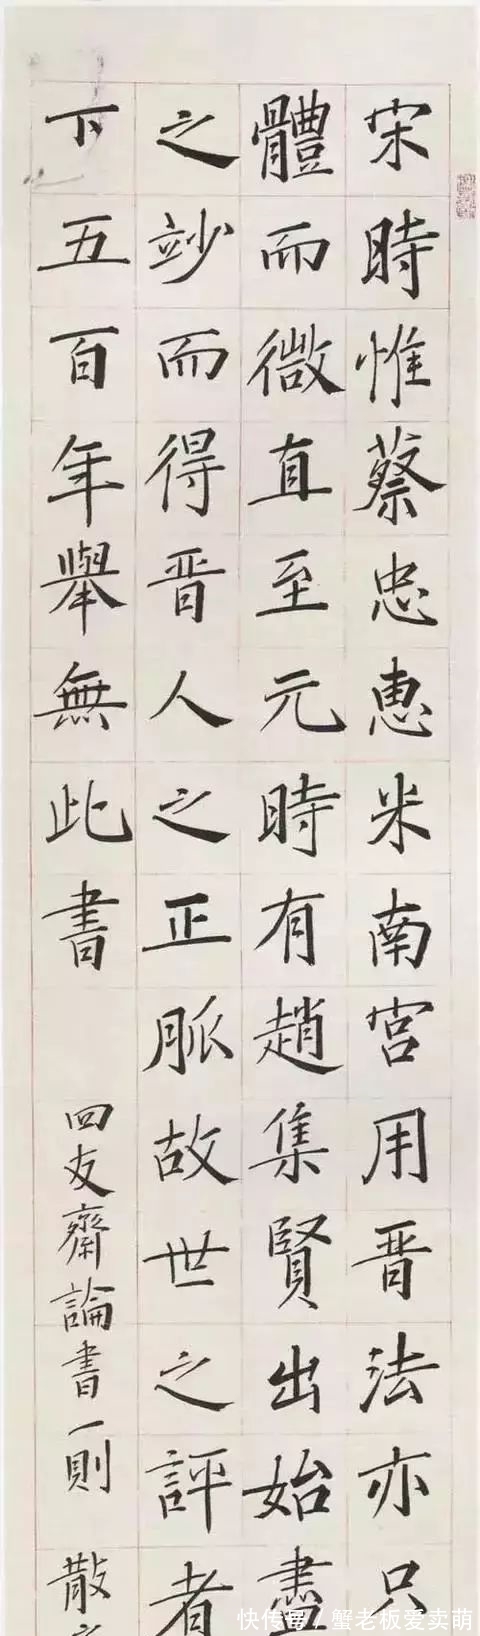 宋時惟蔡忠惠米南宮用晋法亦只
體而微直至元時有趙集賢出始盡
之竗而得晋人之正脈故世之評者
下五百年舉無此書
四友齋論書一則 散
快传号/蟹老板爱卖萌